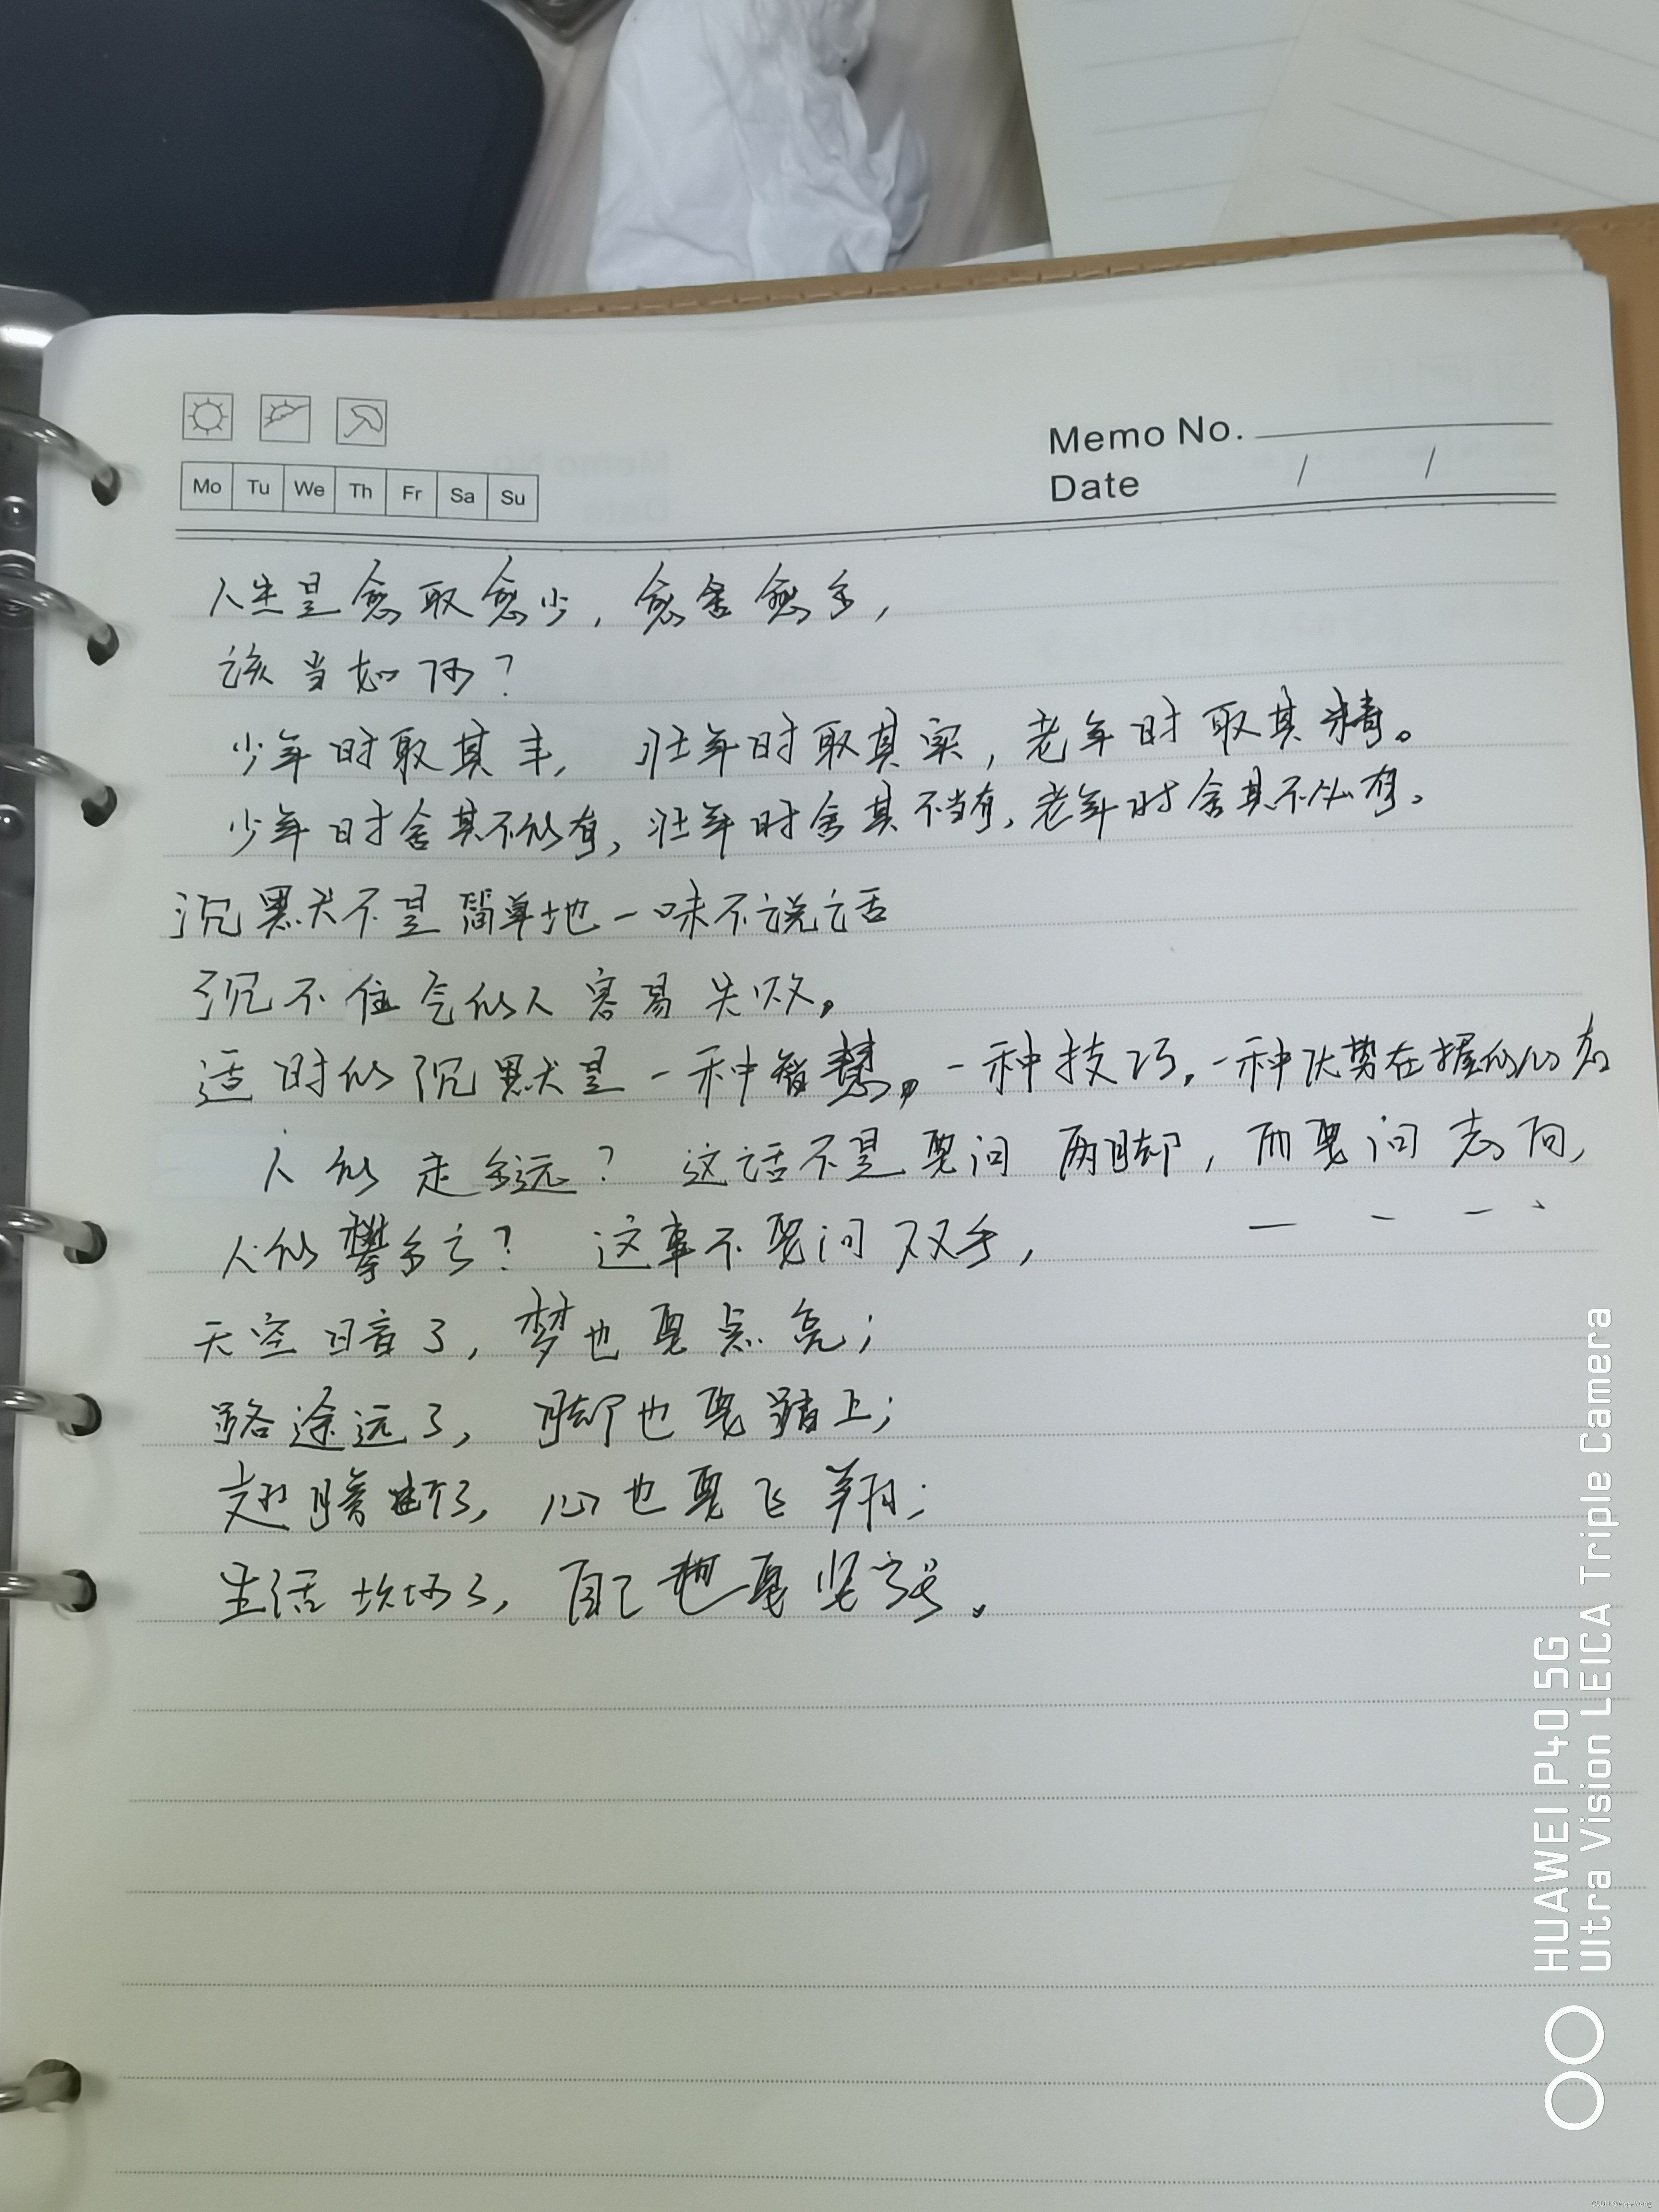 Memo No.
Date / /
Mo Tu We Th Fr Sa Su
人生是愈取愈少，愈舍愈多，
该当如何？
少年时取其丰，壮年时取其实，老年时取其精。
少年时舍其不能有，壮年时舍其不当有，老年时舍其不必有。
沉默不是简单地一味不说话
沉不住气的人容易失败。
适时的沉默是一种智慧，一种技巧，一种优势在握的心态
人能走多远？这话不是要问两脚，而要问志向，
人能攀多高？这事不要问双手，
天空暗了，梦也要点亮；
路途远了，脚也要踏上；
翅膀断了，心也要飞翔；
生活坎坷了，自己也要坚强。
HUAWEI P40 5G
Ultra Vision LEICA Triple Camera